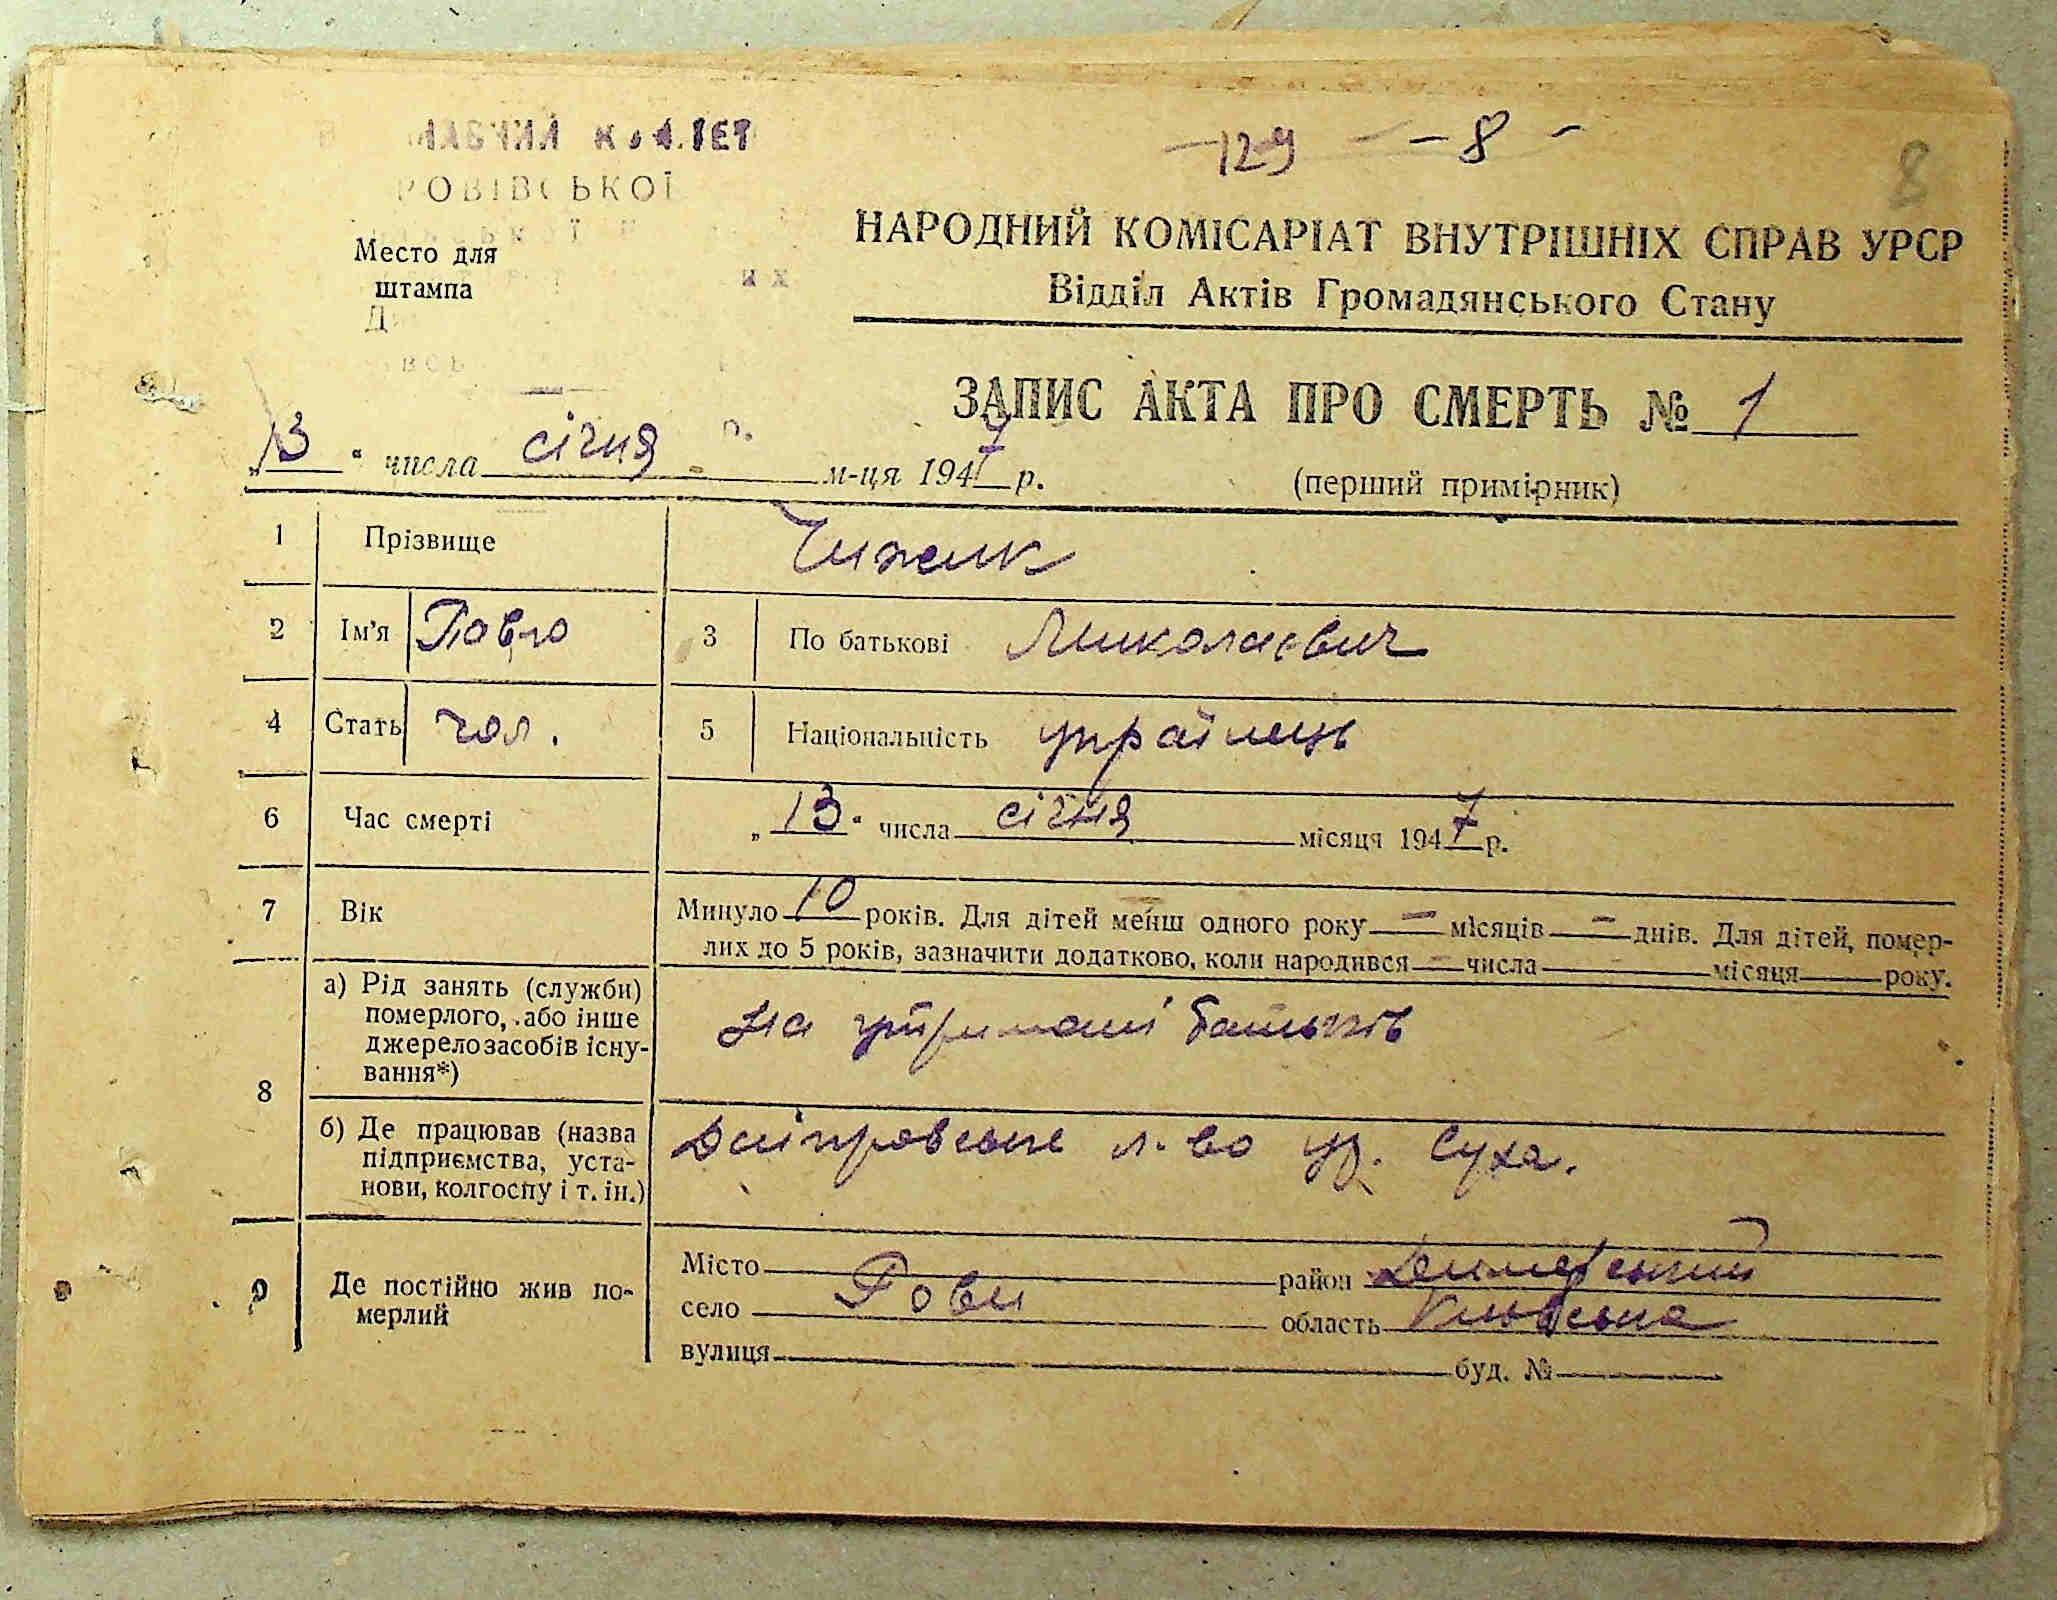 КОМІТЕТ
РОВІВСЬКОЇ
-129 - 8 -
8
Место для
штампа
НАРОДНИЙ КОМІСАРІАТ ВНУТРІШНІХ СПРАВ УРСР
Відділ Актів Громадянського Стану
ЗАПИС АКТА ПРО СМЕРТЬ № 1
„13" числа січня м-ця 1947 р.
(перший примірник)
1 Прізвище Чижик
2 Ім'я Павло 3 По батькові Миколаєвич
4 Стать чол. 5 Національність українець
6 Час смерті „13" числа січня місяця 1947 р.
7 Вік Минуло 10 років. Для дітей менш одного року — місяців — днів. Для дітей, помер-
лих до 5 років, зазначити додатково, коли народився — числа місяця року.
8 а) Рід занять (служби)
померлого, або інше
джерело засобів існу-
вання*)
на утримані батьків
б) Де працював (назва
підприємства, уста-
нови, колгоспу і т. ін.)
Дніпровське л-во ур. Суха.
9 Де постійно жив по-
мерлий
Місто район Димерський
село Рови область Київська
вулиця буд. №